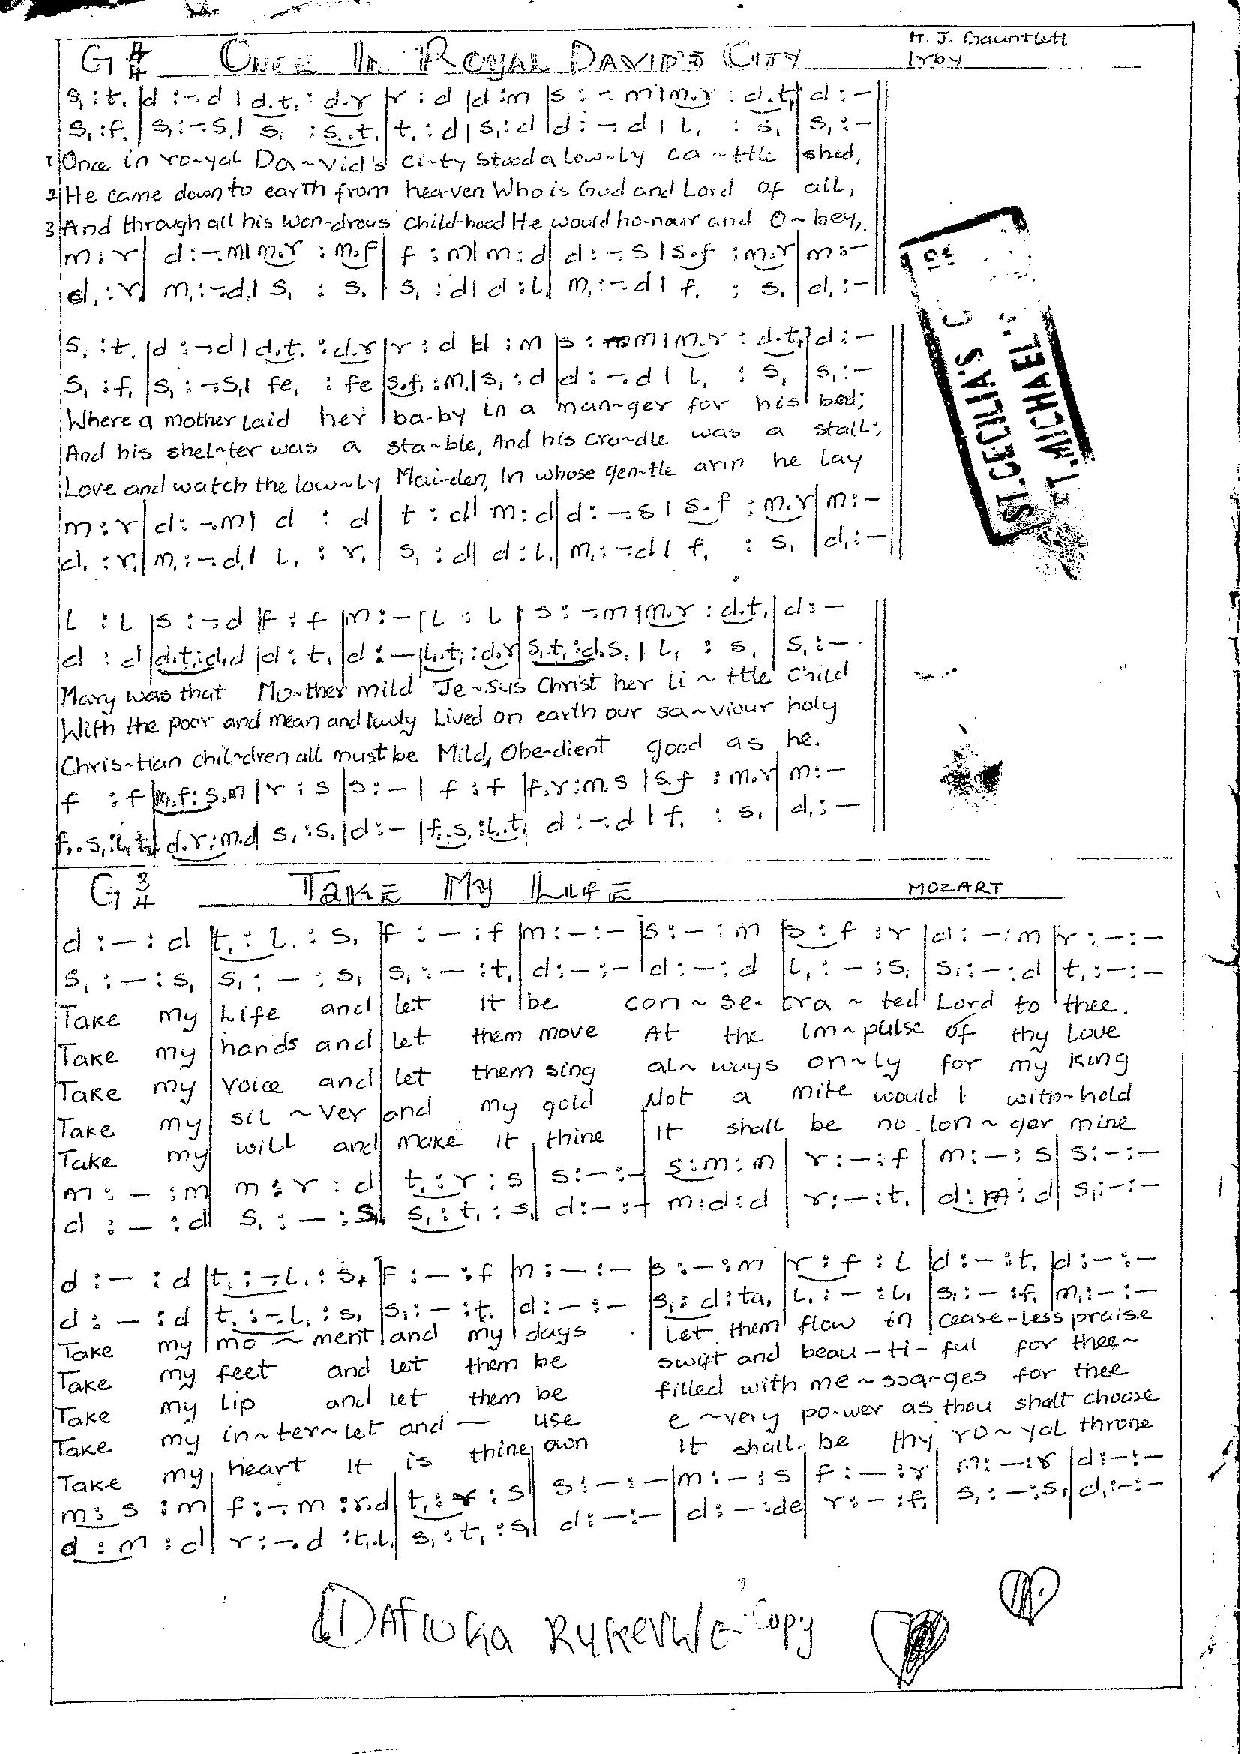 G 4/4 ONCE IN ROYAL DAVID'S CITY
H. J. Gauntlett
Irby
s, : t, | d :-.d | d.t, : d.r | r : d | d : m | s :-.m | m.r : d.t, | d :-
s, : f, | s, :-.s, | s, : s,.t, | t, : d | s, : d | d :-.d | l, : s, | s, :-
1 Once in ro~yal Da~vid's ci~ty stood a low~ly ca~ttle shed,
2 He came down to earth from heaven Who is God and Lord of all,
3 And through all his won~drous child~hood He would ho~nour and O~bey,
m : r | d :-.m | m.r : m.f | f : m | m : d | d :-.s | s.f : m.r | m :-
d, : r, | m, :-.d, | s, : s, | s, : d | d : l, | m, :-.d | f, : s, | d, :-
s, : t, | d :-.d | d.t, : d.r | r : d | d : m | s :-.m | m.r : d.t, | d :-
s, : f, | s, :-.s, | fe, : fe | s,.f, : m, | s, : d | d :-.d | l, : s, | s, :-
Where a mother laid her ba-by in a man~ger for his bed;
And his shel~ter was a sta~ble, And his cra~dle was a stall;
Love and watch the low~ly Mai-den, In whose gen~tle arm he lay
m : r | d :-.m | d : d | t, : d | m : d | d :-.s | s.f : m.r | m :-
d, : r, | m, :-.d, | l, : r, | s, : d | d : l, | m, :-.d | f, : s, | d, :-
l : l | s :-.d | f : f | m :- | l : l | s :-.m | m.r : d.t, | d :-
d : d | d.t, : d.d | d : t, | d :- | l,.t, : d.r | s,.t, : d.s, | l, : s, | s, :-
Mary was that Mo~ther mild Je~sus Christ her li~ttle Child
With the poor and mean and lowly Lived on earth our sa~viour holy
Chris~tian chil~dren all must be Mild, Obe~dient good as he.
f : f | m.f : s.m | r : s | s :- | f : f | f.r : m.s | s.f : m.r | m :-
f,.s, : l,.t, | d.r : m.d | s, : s, | d :- | f,.s, : l,.t, | d :-.d | f, : s, | d, :-
G 3/4 TAKE MY LIFE
MOZART
d :- : d | t, : l, : s, | f :- : f | m :- :- | s :- : m | s : f : r | d :- : m | r :- :-
s, :- : s, | s, :- : s, | s, :- : t, | d :- :- | d :- : d | l, :- : s, | s, :- : d | t, :- :-
Take my life and let it be con~se-cra~ted Lord to thee.
Take my hands and let them move At the im~pulse of thy love
Take my voice and let them sing al~ways on~ly for my King
Take my sil~ver and my gold Not a mite would I with-hold
Take my will and make it thine It shall be no lon~ger mine
m :- : m | m : r : d | t, : r : s | s :- :- | s : m : m | r :- : f | m :- : s | s :- :-
d :- : d | s, :- : s, | s, : t, : s, | d :- :- | m : d : d | r :- : t, | d : m : d | s, :- :-
d :- : d | t, :-.l, : s, | f :- : f | m :- :- | s :- : m | r : f : l | d :- : t, | d :- :-
d :- : d | t, :-.l, : s, | s, :- : t, | d :- :- | s, : d : ta, | l, :- : l, | s, :- : f, | m, :- :-
Take my mo~ment and my days Let them flow in cease-less praise
Take my feet and let them be swift and beau-ti-ful for thee~
Take my lip and let them be filled with me~ssa-ges for thee
Take my in~ter~let and — use e~very po-wer as thou shalt choose
Take my heart it is thine own It shall be thy ro~yal throne
m : s : m | f :-.m : r.d | t, : r : s | s :- :- | m :- : s | f :- : r | m :- : r | d :- :-
d : m : d | r :-.d : t,.l, | s, : t, : s, | d :- :- | d :- : de | r :- : f, | s, :- : s, | d, :- :-
Copy
ST. CECILIA'S C
ST. MICHAEL